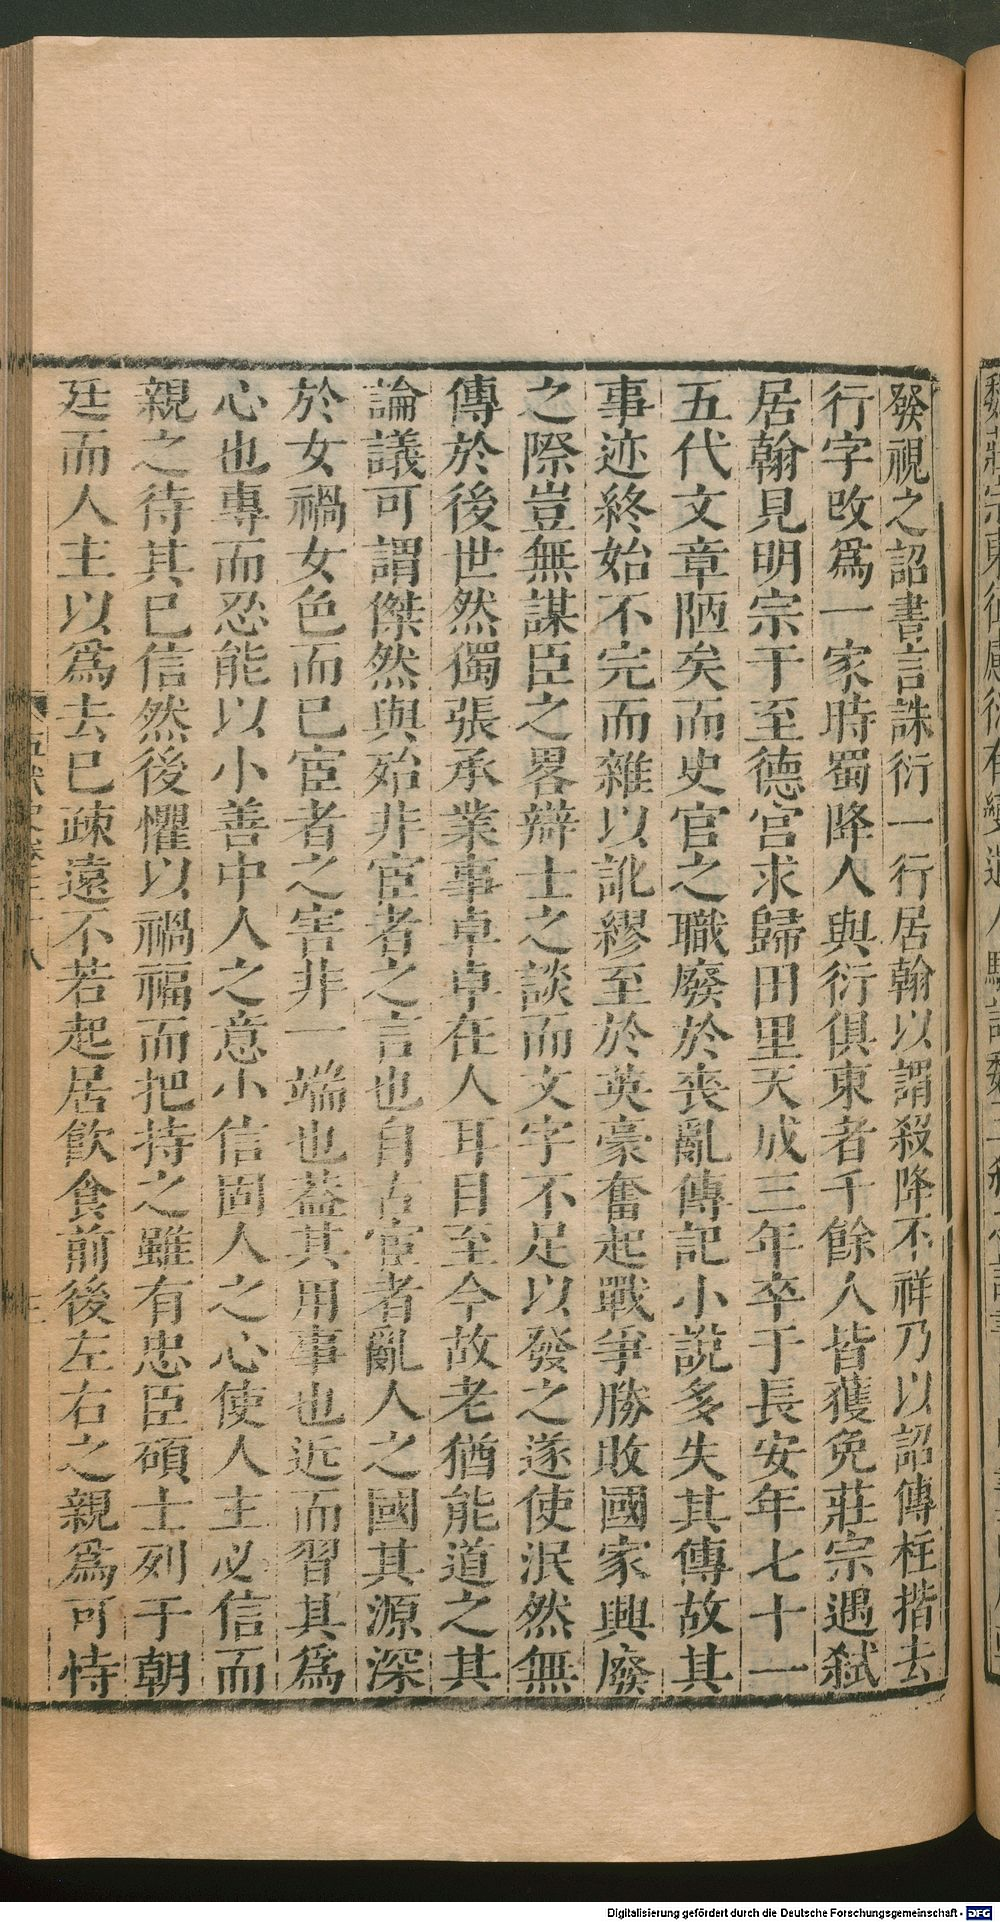 發視之詔書言誅衍一行居翰以謂殺降不祥乃以詔傅柱揩去
行字改爲一家時蜀降人與衍俱東者千餘人皆獲免莊宗遇弑
居翰見明宗于至德宮求歸田里天成三年卒于長安年七十一
五代文章陋矣而史官之職廢於喪亂傳記小說多失其傳故其
事迹終始不完而雜以訛繆至於英豪奮起戰爭勝敗國家興廢
之際豈無謀臣之畧辯士之談而文字不足以發之遂使泯然無
傳於後世然獨張承業事卓卓在人耳目至今故老猶能道之其
論議可謂傑然與殆非宦者之言也自古宦者亂人之國其源深
於女禍女色而已宦者之害非一端也葢其用事也近而習其爲
心也專而忍能以小善中人之意小信固人之心使人主必信而
親之待其已信然後懼以禍福而把持之雖有忠臣碩士列于朝
廷而人主以爲去已疎遠不若起居飮食前後左右之親爲可恃
Digitalisierung gefördert durch die Deutsche Forschungsgemeinschaft - DFG